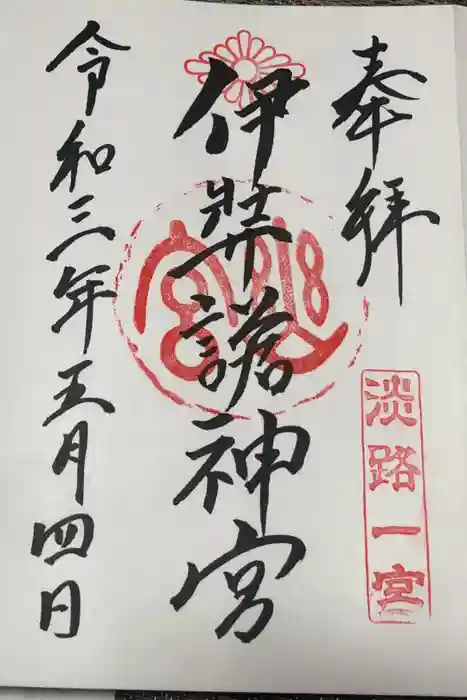 奉拝
淡路一宮
伊弉諾神宮
令和三年五月四日